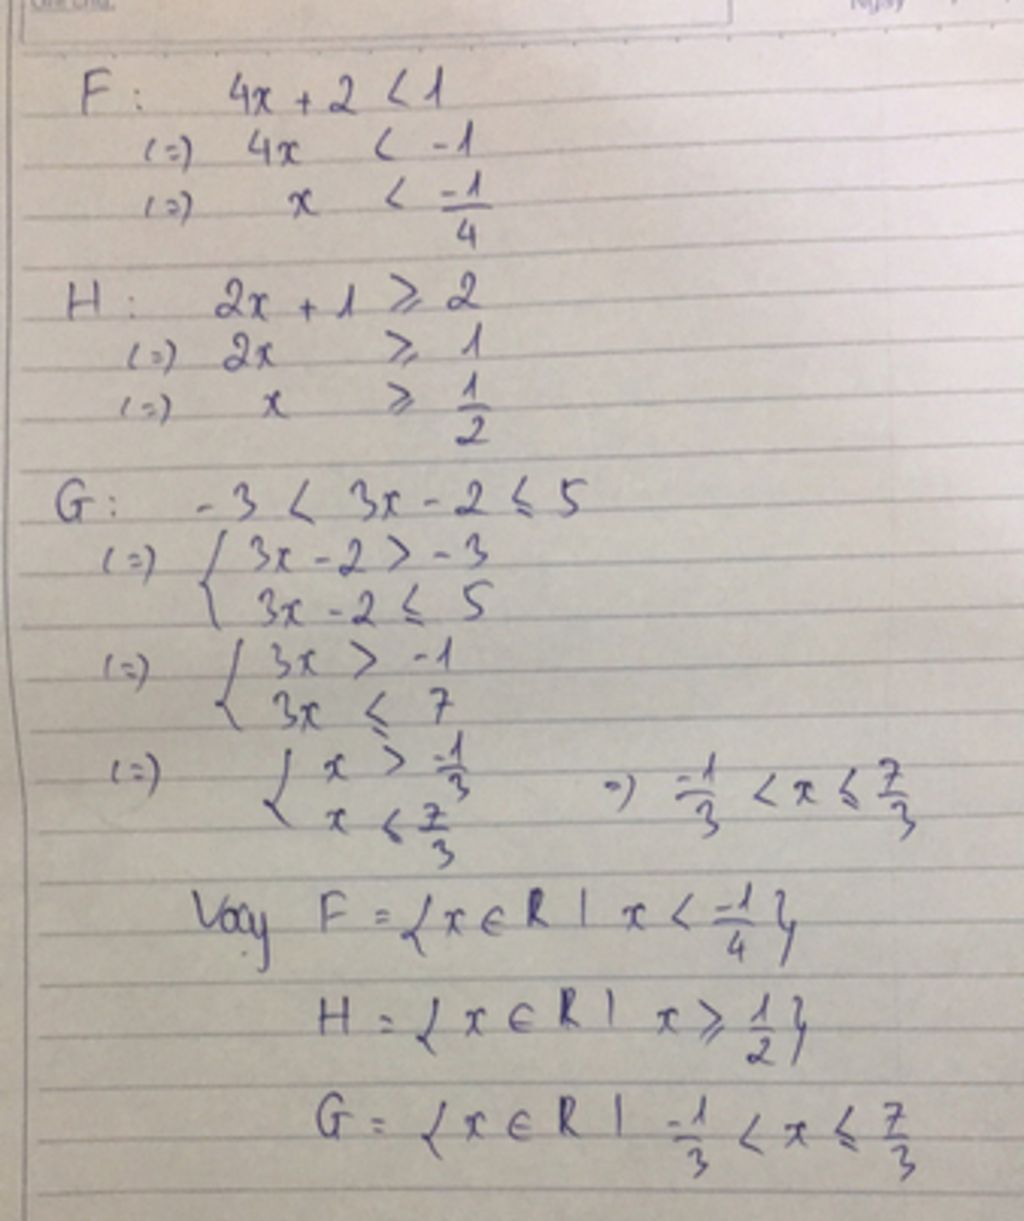 Ngày
F: 4x + 2 < 1
(=) 4x < -1
(=) x < -1/4
H: 2x + 1 ⩾ 2
(=) 2x ⩾ 1
(=) x ⩾ 1/2
G: -3 < 3x - 2 ⩽ 5
(=) { 3x - 2 > -3
3x - 2 ⩽ 5
(=) { 3x > -1
3x ⩽ 7
(=) { x > -1/3
x ⩽ 7/3 =) -1/3 < x ⩽ 7/3
Vậy F = {x ∈ R | x < -1/4}
H = {x ∈ R | x ⩾ 1/2}
G = {x ∈ R | -1/3 < x ⩽ 7/3